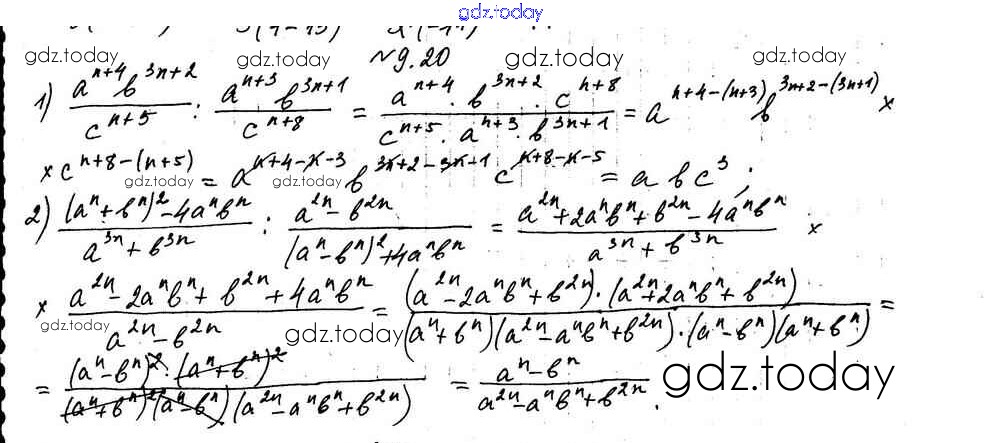 gdz.today
gdz.today gdz.today №9.20 gdz.today gdz.today
1) a^(n+4) b^(3n+2) / c^(n+5) : a^(n+3) b^(3n+1) / c^(n+8) = a^(n+4) · b^(3n+2) · c^(n+8) / c^(n+5) · a^(n+3) · b^(3n+1) = a^(n+4-(n+3)) b^(3n+2-(3n+1)) ×
× c^(n+8-(n+5)) = a^(n+4-n-3) b^(3n+2-3n+1) c^(n+8-n-5) = a b c^3 ;
gdz.today gdz.today gdz.today gdz.today
2) (a^n + b^n)^2 - 4a^n b^n / a^(3n) + b^(3n) : a^(2n) - b^(2n) / (a^n - b^n)^2 + 4a^n b^n = a^(2n) + 2a^n b^n + b^(2n) - 4a^n b^n / a^(3n) + b^(3n) ×
× a^(2n) - 2a^n b^n + b^(2n) + 4a^n b^n / a^(2n) - b^(2n) = (a^(2n) - 2a^n b^n + b^(2n)) · (a^(2n) + 2a^n b^n + b^(2n)) / (a^n + b^n)(a^(2n) - a^n b^n + b^(2n)) · (a^n - b^n)(a^n + b^n) =
gdz.today gdz.today gdz.today
= (a^n - b^n)^2 · (a^n + b^n)^2 / (a^n + b^n)^2 (a^n - b^n)(a^(2n) - a^n b^n + b^(2n)) = a^n - b^n / a^(2n) - a^n b^n + b^(2n) .
gdz.today